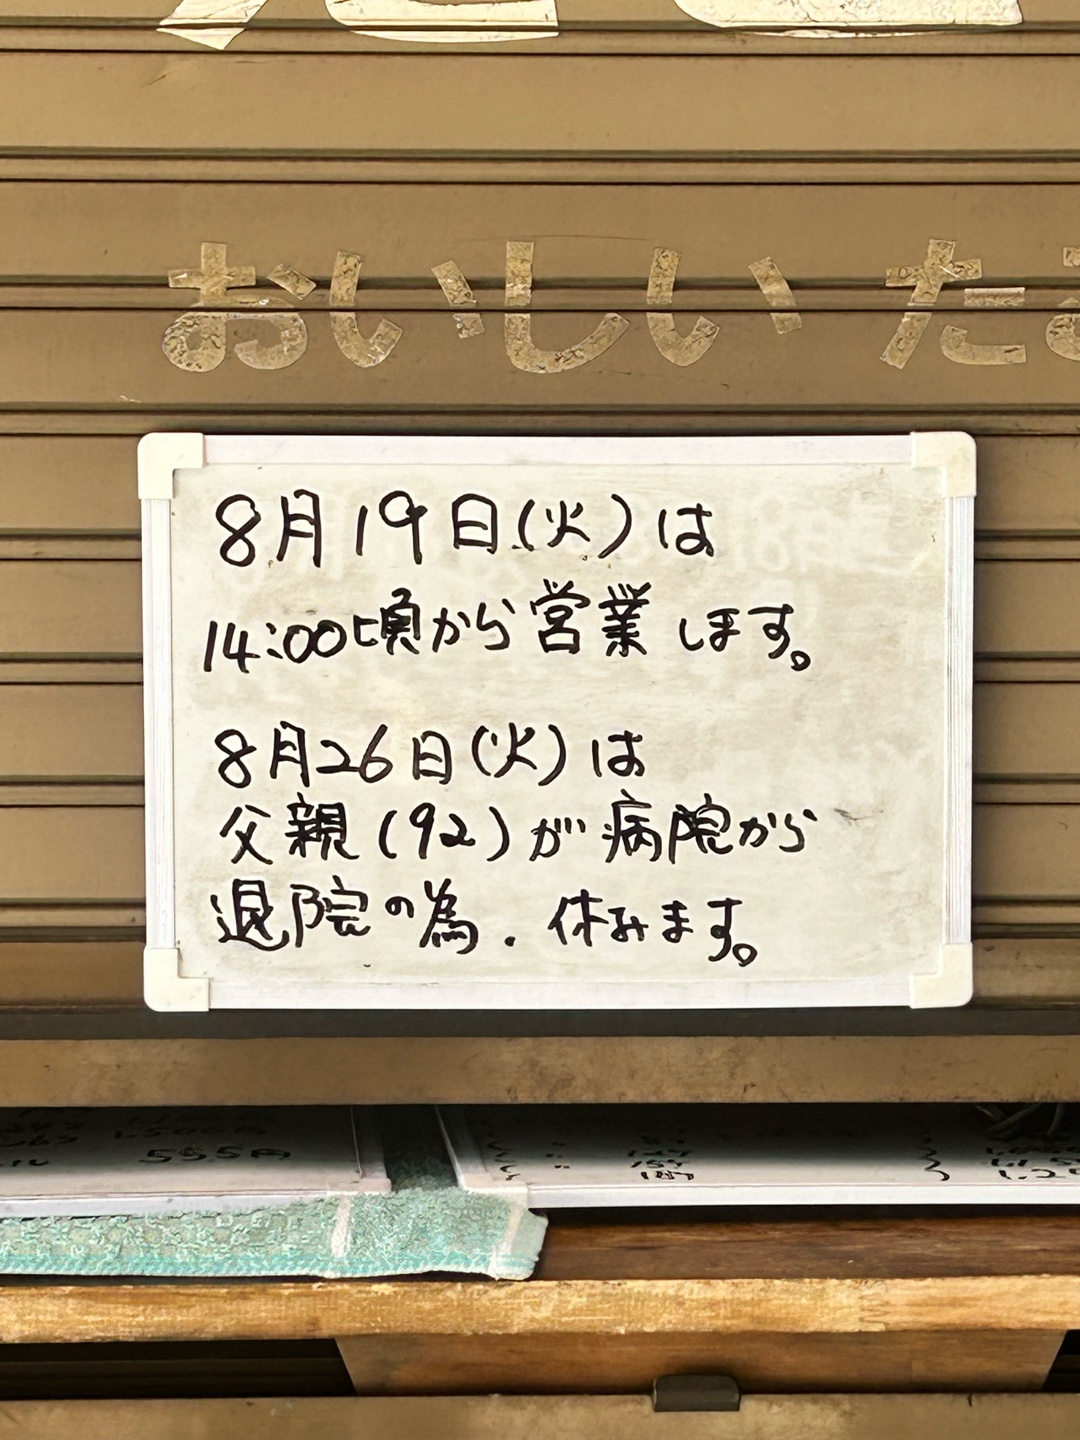 おいしい た
8月19日(火)は
14:00頃から営業します。
8月26日(火)は
父親(92)が病院から
退院の為.休みます。